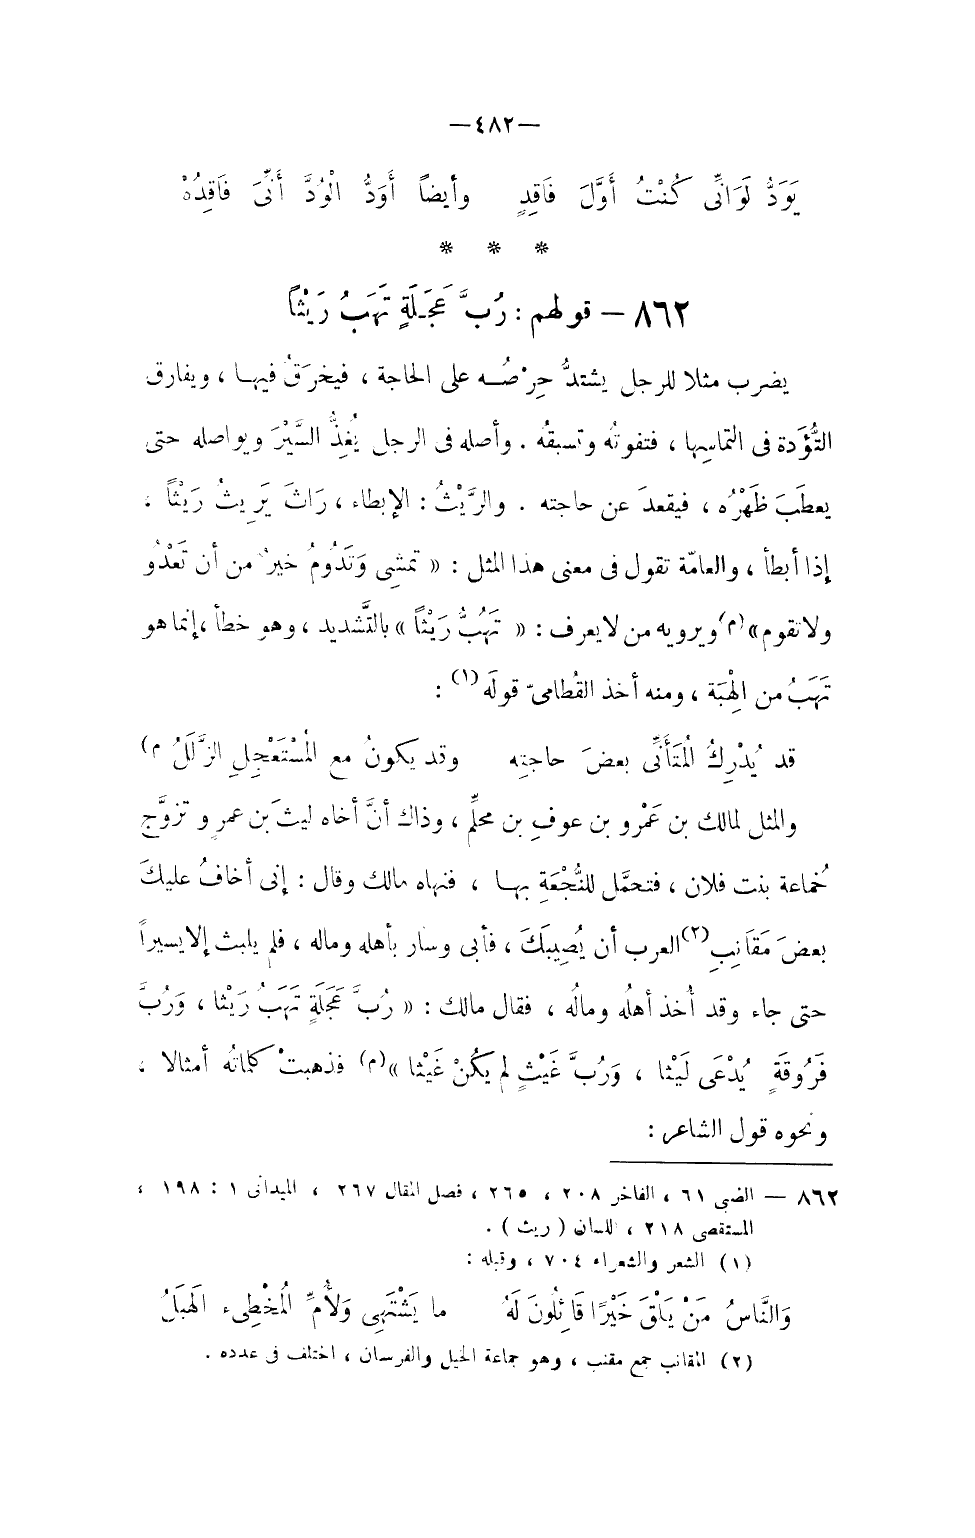 —٤٨٢—
يَوَدُّ لَوَانِّى كُنْتُ أَوَّلَ فَاقِدٍ وأيضاً أَوَدُّ الْوُدَّ أَنِّىَ فَاقِدُهْ
* * *
٨٦٢ – قولهم : رُبَّ عَجَلَةٍ تَهَبُ رَيْثاً
يضرب مثلا للرجل يشتدُّ حِرْصُه على الحاجة ، فيخرَقُ فيها ، ويفارق
التُّؤَدة فى التماسِها ، فتفوتُه وتسبقُه . وأصله فى الرجل يُغِذُّ السَّيْرَ ويواصله حتى
يعطَبَ ظَهْرُه ، فيقعدَ عن حاجته . والرَّيْثُ : الإبطاء ، رَاثَ يَرِيثُ رَيْثاً ،
إذا أبطأ ، والعامّة تقول فى معنى هذا المثل : « تمشِى وَتَدُومُ خيرٌ من أن تَعْدُو
ولا تقوم» (م) ويرويه من لا يعرف : « تَهُبُّ رَيْثاً » بالتَّشديد ، وهو خطأ ، إنما هو
تَهَبُ من الهِبَة ، ومنه أخذ القُطامىّ قولَه (١) :
قد يُدْرِكُ المُتَأَنِّى بعضَ حاجتِه وقد يكونُ مع المُسْتَعْجِلِ الزَّلَلُ م)
والمثل لمالك بن عَمْرو بن عوفِ بن محلِّم ، وذاك أنَّ أخاه ليثَ بن عمرٍو تزوَّج
خُماعة بنت فلان ، فتحمَّل للنُّجْعَةِ بها ، فنهاه مالك وقال : إنى أخافُ عليكَ
بعضَ مَقَانِبِ (٢) العرب أن يُصِيبَكَ ، فأبى وسار بأهله وماله ، فلم يلبث إلا يسيراً
حتى جاء وقد أُخذ أهلُه ومالُه ، فقال مالك : « رُبَّ عَجَلَةٍ تَهَبُ رَيْثا ، وَرُبَّ
فَرُوقَةٍ يُدْعَى لَيْثا ، وَرُبَّ غَيْثٍ لم يَكُنْ غَيْثا » (م) فذهبتْ كلماتُه أمثالا ،
ونحوه قول الشاعر :
٨٦٢ — الضبى ٦١ ، الفاخر ٢٠٨ ، ٢٦٥ ، فصل المقال ٢٦٧ ، الميدانى ١ : ١٩٨ ،
المستقصى ٢١٨ ، اللسان ( ريث ) .
(١) الشعر والشعراء ٧٠٤ ، وقبله :
وَالنَّاسُ مَنْ يَلْقَ خَيْرًا قَائِلُونَ لَهُ ما يَشْتَهِى وَلأُمِّ المُخْطِىء الهَبَلُ
(٢) المقانب جمع مقنب ، وهو جماعة الخيل والفرسان ، اختلف فى عدده .